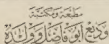 مطبعة ومكتبة
بديع أبو فاضل وأولاده